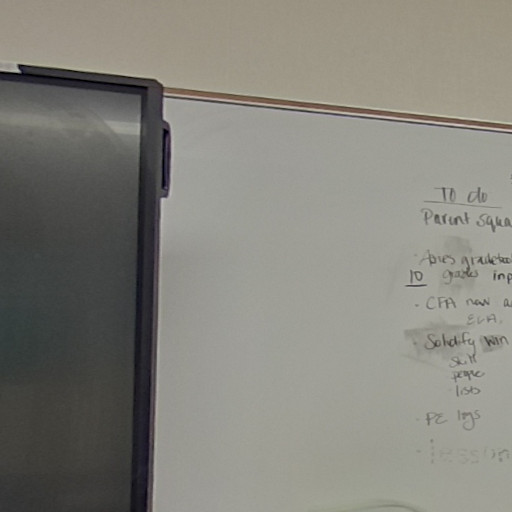 To do
Parent squa
· Aeries gradeboo
10 grades inp
· CFA new a
ELA,
· Solidify Win
skill
people
lists
· PE logs
· lesson